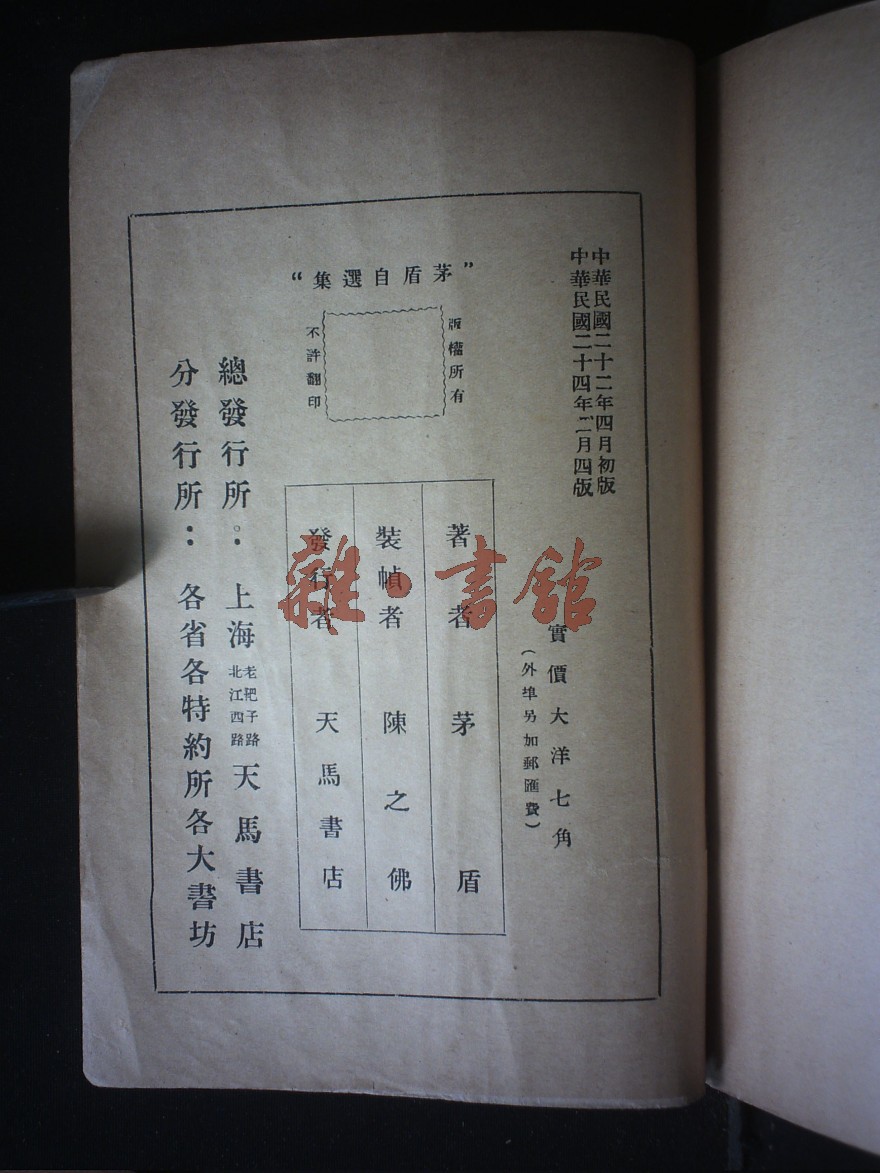 中華民國二十二年四月初版
中華民國二十四年二月四版
實價大洋七角
(外埠另加郵匯費)
"茅盾自選集"
版權所有
不許翻印
著者 茅盾
裝幀者 陳之佛
發行者 天馬書店
總發行所：上海老靶子路北江西路天馬書店
分發行所：各省各特約所各大書坊
雜·書館